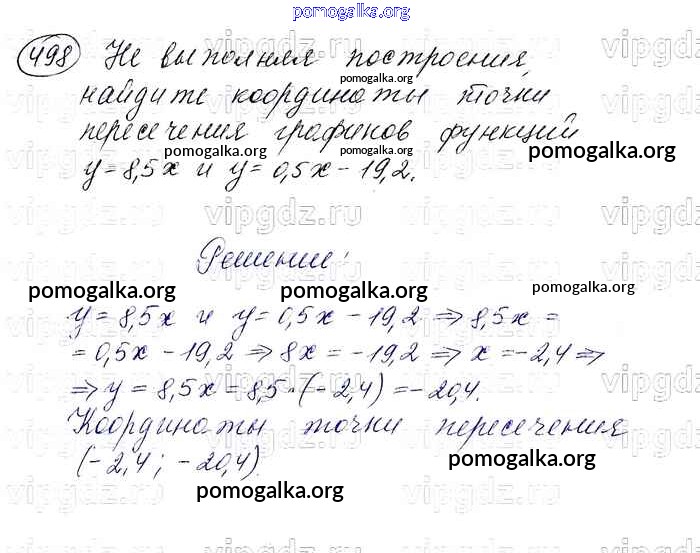 pomogalka.org
498 Не выполняя построения,
pomogalka.org
найдите координаты точки
pomogalka.org
пересечения графиков функций
pomogalka.org pomogalka.org pomogalka.org
y=8,5x и y=0,5x-19,2.
vipgdz.ru vipgdz.ru vipgdz.ru
Решение:
pomogalka.org pomogalka.org pomogalka.org
y=8,5x и y=0,5x-19,2 ⇒ 8,5x =
= 0,5x - 19,2 ⇒ 8x = -19,2 ⇒ x = -2,4 ⇒
⇒ y = 8,5x = 8,5·(-2,4) = -20,4.
Координаты точки пересечения
(-2,4; -20,4).
pomogalka.org
pomogalka.org